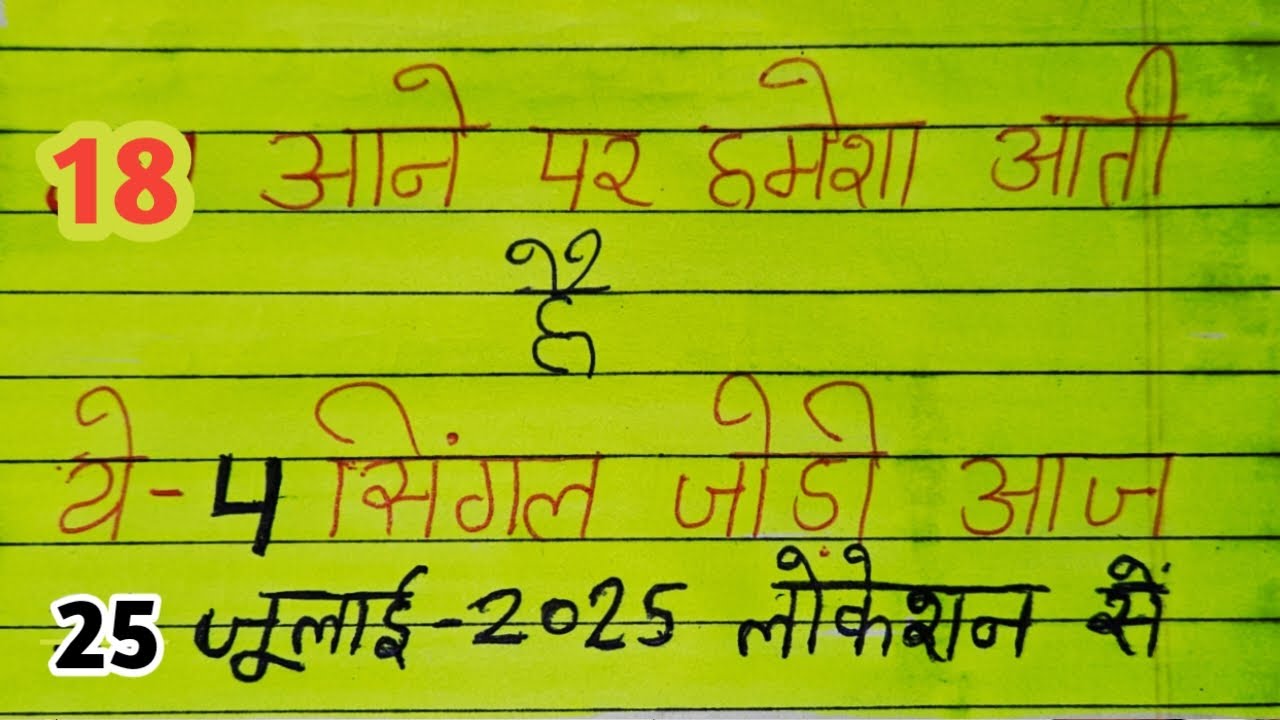 18 आने पर हमेशा आती
है
ये-4 सिंगल जोडी़ आज
25 जूलाई-2025 लोकेशन सें